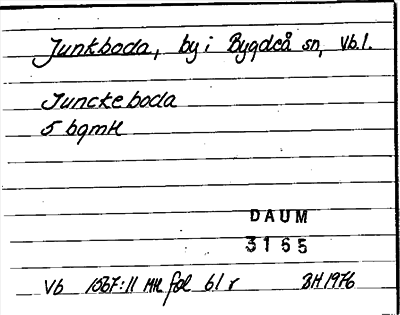 Junkboda, by i Bygdeå sn, Vb.l.
Junckeboda
5 bgmH
DAUM
3165
Vb 1567:11 MH fol 61 r BH 1976